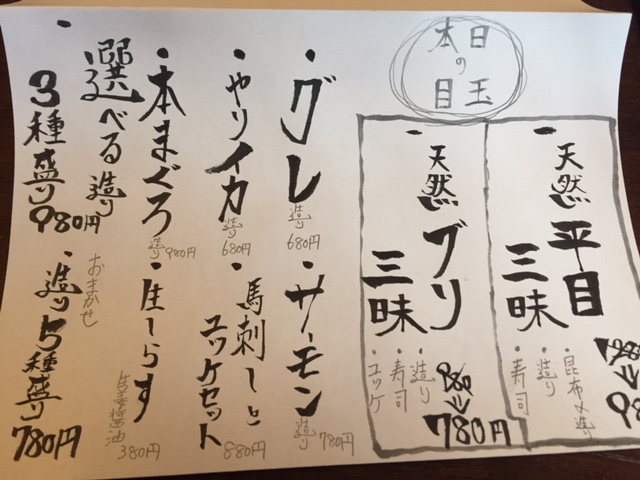 本日の目玉
天然平目三昧
・昆布〆造り
・造り
・寿司
天然ブリ三昧
・造り
・寿司
・ユッケ
980
⇓
780円
・グレ 造り 680円
・サーモン 造り 780円
・やりイカ 造り 680円
・馬刺しとユッケセット 880円
・本まぐろ 造り 980円
・生しらす 生姜醤油 380円
・選べる造り3種盛り 980円
・おまかせ造り5種盛り 780円